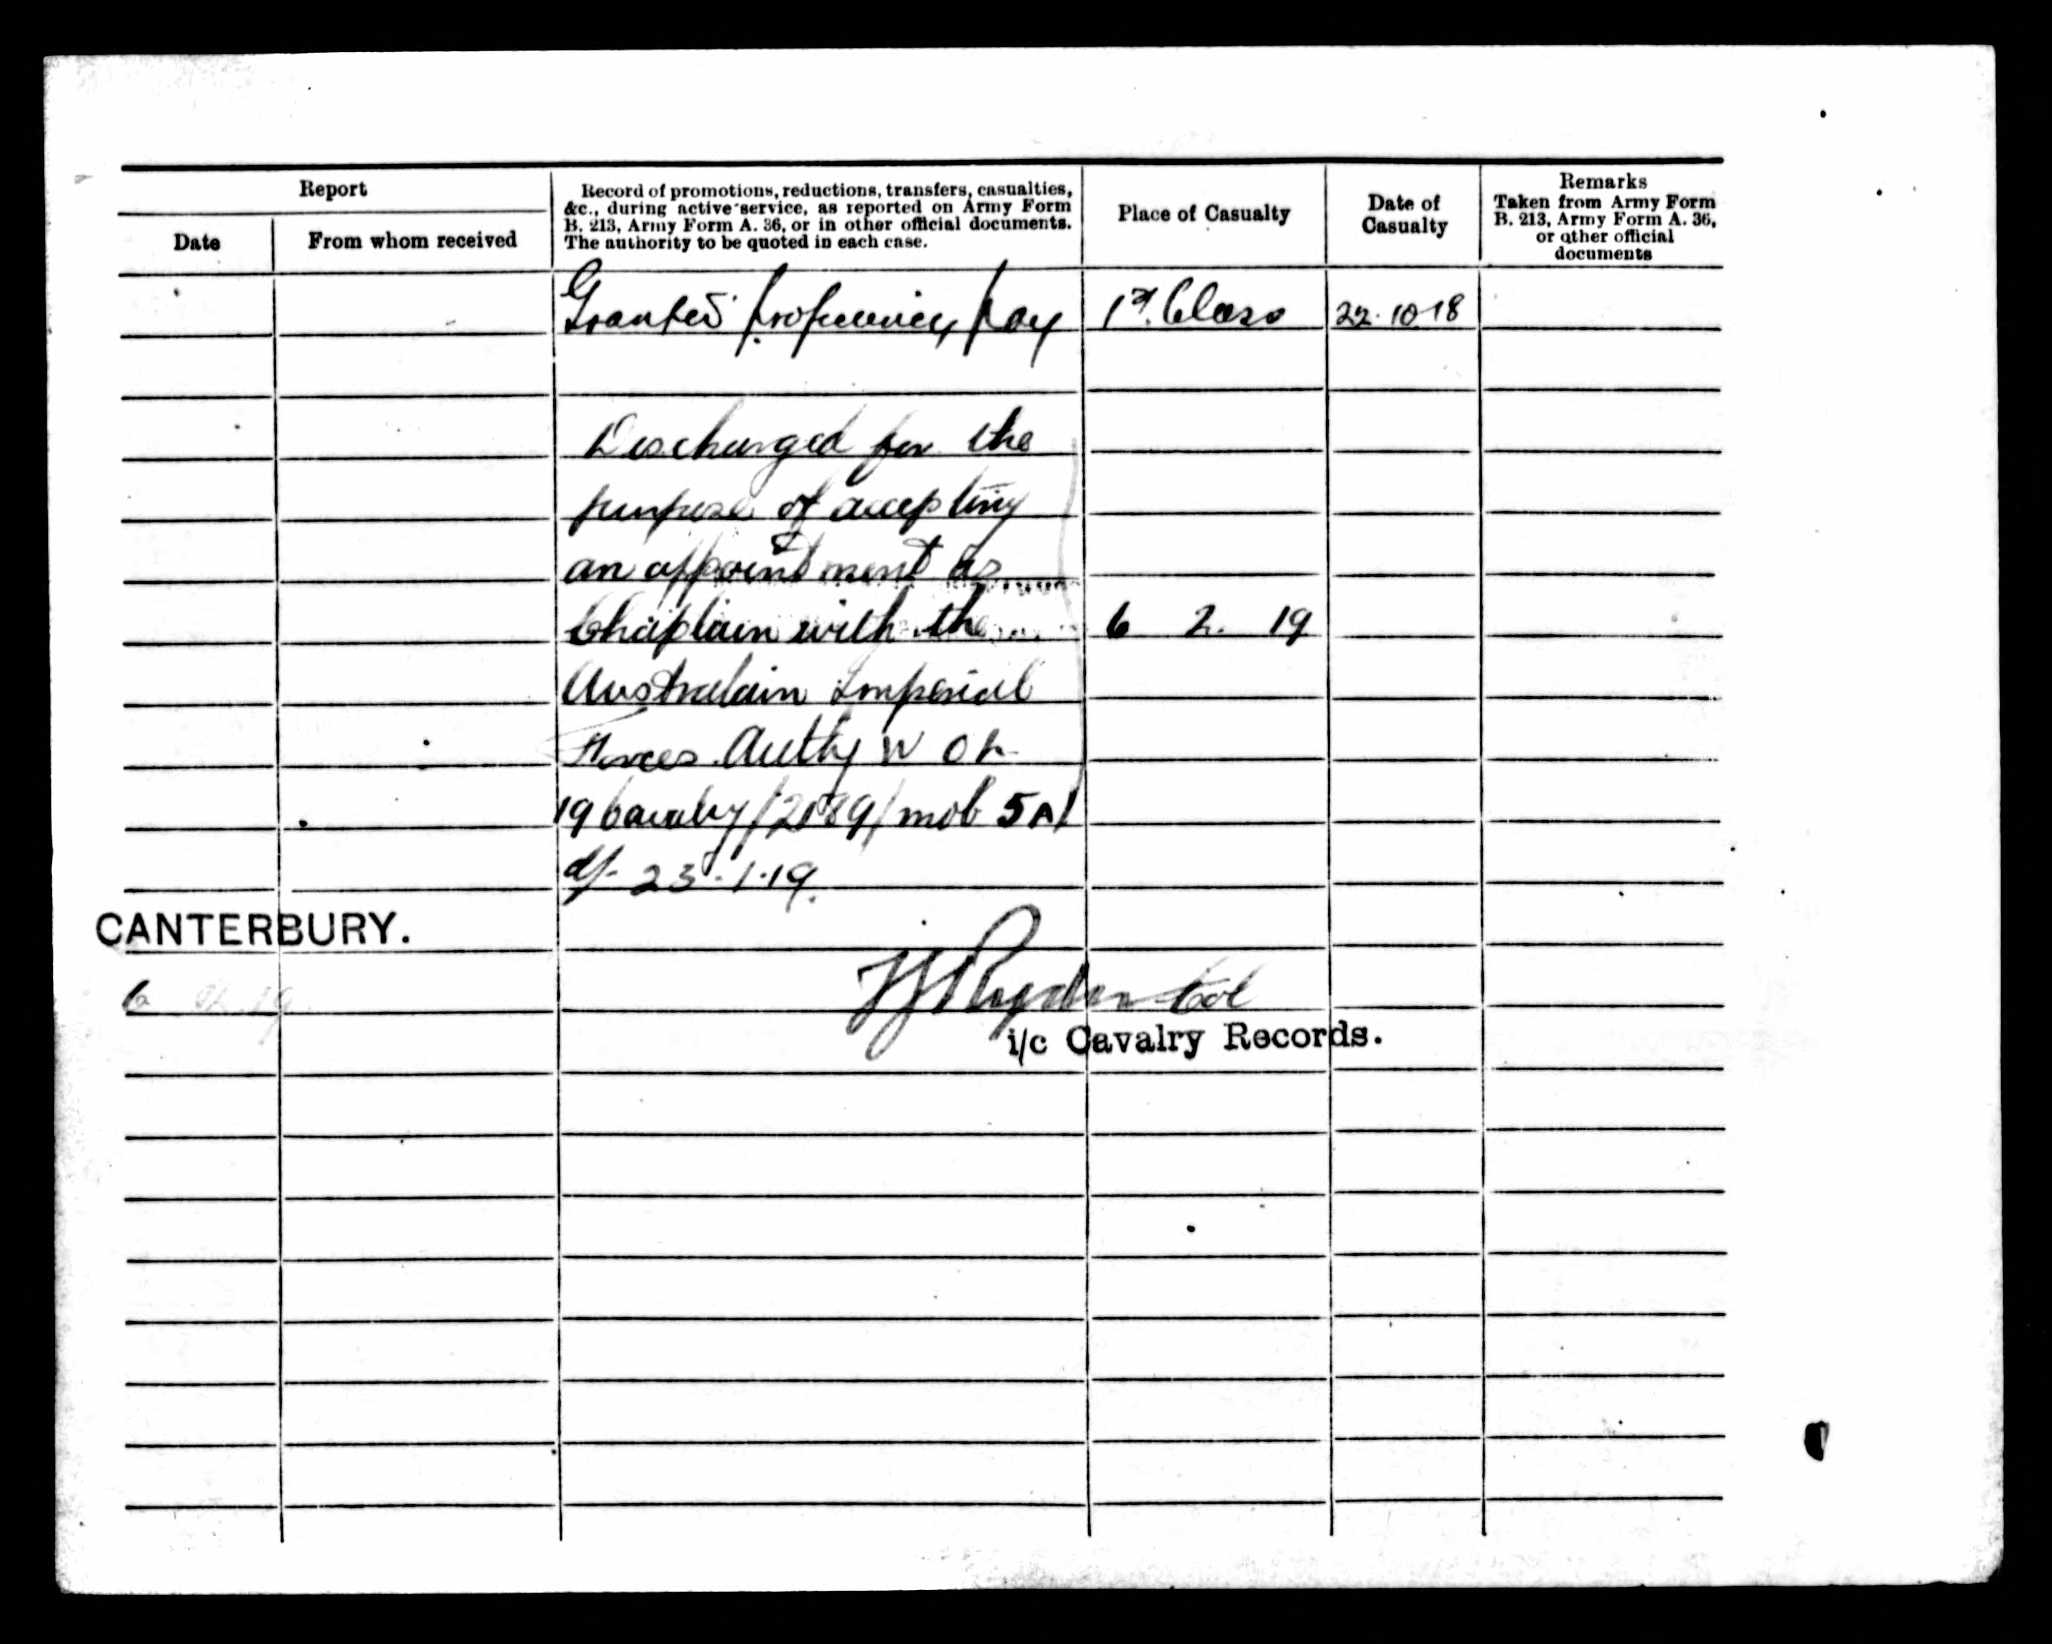 Report
Date
From whom received
Record of promotions, reductions, transfers, casualties,
&c., during active service, as reported on Army Form
B. 213, Army Form A. 36, or in other official documents.
The authority to be quoted in each case.
Place of Casualty
Date of
Casualty
Remarks
Taken from Army Form
B. 213, Army Form A. 36,
or other official
documents
Granted Proficiency Pay 1st. Class 22.10.18
Discharged for the
purpose of accepting
an appointment as
Chaplain with the 6 2. 19
Australain Imperial
Forces. Authy W O L
19 Cavalry/2189/mob 5A/
d/- 23.1.19.
CANTERBURY.
6 2.19
Col
i/c Cavalry Records.